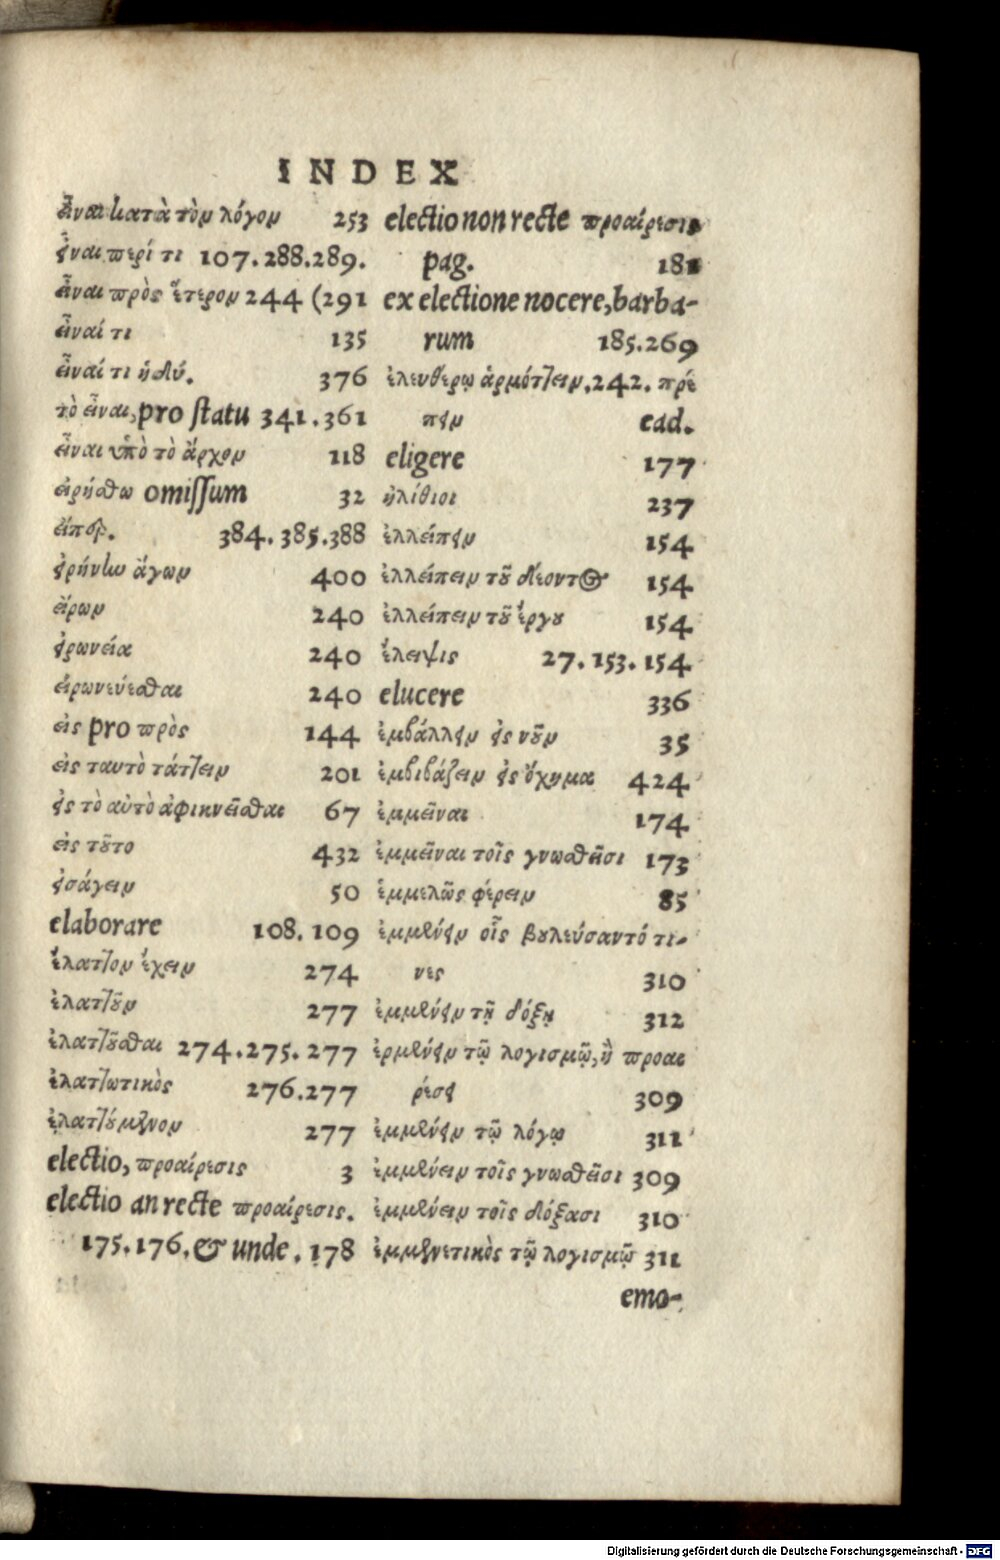 INDEX
εἶναι κατὰ τὸν λόγον 253
εἶναι περί τι 107.288.289.
εἶναι πρὸς ἕτερον 244 (291
εἶναί τι 135
εἶναί τι ἡδύ. 376
τὸ εἶναι, pro statu 341.361
εἶναι ὑπὸ τὸ ἄρχον 118
εἰρήσθω omissum 32
εἴπερ. 384.385.388
εἰρήνην ἄγων 400
εἴρων 240
εἰρωνεία 240
εἰρωνεύεσθαι 240
εἰς pro πρὸς 144
εἰς ταυτὸ τάττειν 201
εἰς τὸ αὐτὸ ἀφικνεῖσθαι 67
εἰς τοῦτο 432
εἰσάγειν 50
elaborare 108.109
ἔλαττον ἔχειν 274
ἐλαττοῦν 277
ἐλαττοῦσθαι 274.275.277
ἐλαττωτικὸς 276.277
ἐλαττούμενον 277
electio, προαίρεσις 3
electio an recte προαίρεσις.
175.176. & unde. 178
electio non recte προαίρεσις
pag. 181
ex electione nocere, barba-
rum 185.269
ἐλευθέρῳ ἁρμόττειν, 242. πρέ
πειν ead.
eligere 177
ἠλίθιοι 237
ἐλλείπειν 154
ἐλλείπειν τοῦ δέοντος 154
ἐλλείπειν τοῦ ἔργου 154
ἔλειψις 27.153.154
elucere 336
ἐμβάλλειν εἰς νοῦν 35
ἐμβιβάζειν εἰς ὄχημα 424
ἐμμεῖναι 174
ἐμμεῖναι τοῖς γνωσθεῖσι 173
ἐμμελῶς φέρειν 85
ἐμμένειν οἷς βουλεύσαντό τι-
νες 310
ἐμμένειν τῇ δόξῃ 312
ἐρμένειν τῷ λογισμῷ, ἢ προαι
ρέσει 309
ἐμμένειν τῷ λόγῳ 311
ἐμμένειν τοῖς γνωσθεῖσι 309
ἐμμένειν τοῖς δόξασι 310
ἐμμενετικὸς τῷ λογισμῷ 311
emo-
Digitalisierung gefördert durch die Deutsche Forschungsgemeinschaft - DFG